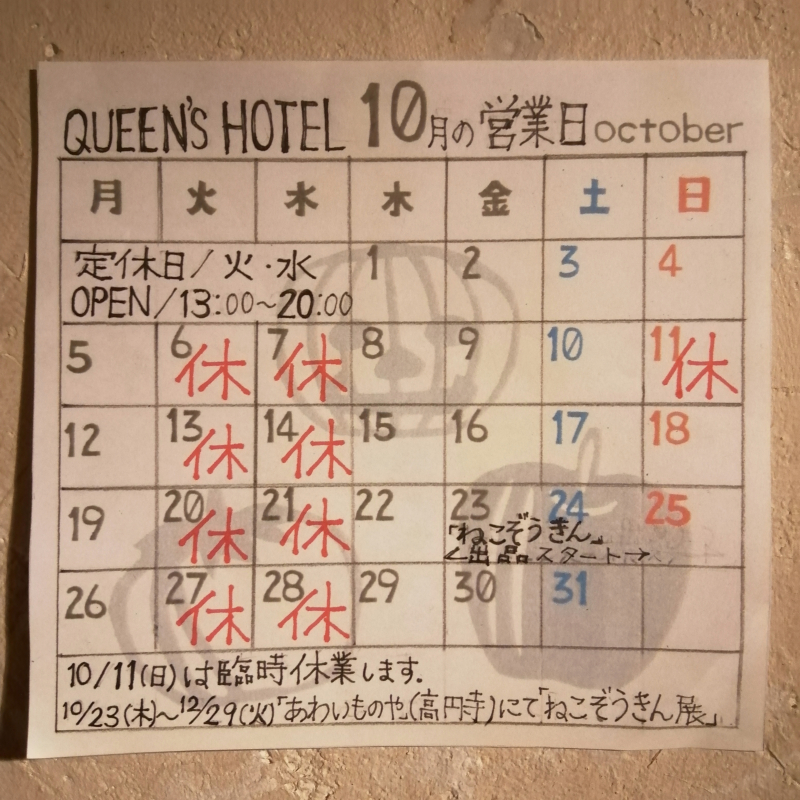 QUEEN'S HOTEL 10月の営業日 october
月 火 水 木 金 土 日
定休日/火・水
OPEN/13:00~20:00
1 2 3 4
5 6休 7休 8 9 10 11休
12 13休 14休 15 16 17 18
19 20休 21休 22 23 24 25
「ねこぞうきん」
←出品スタート→
26 27休 28休 29 30 31
10/11(日)は臨時休業します.
10/23(木)~12/29(火)「あわいものや」(高円寺)にて「ねこぞうきん展」